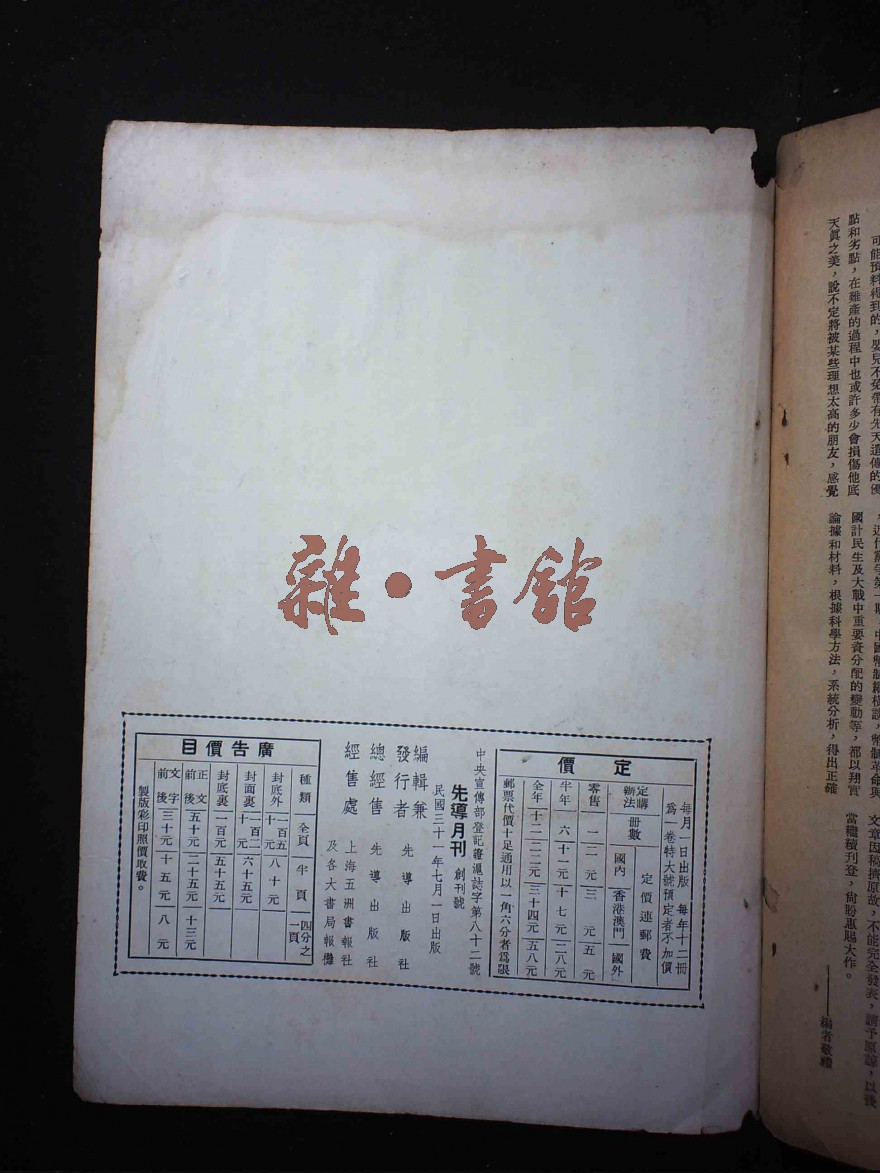 可能預料得到的，嬰兒不免帶有先天遺傳的優
點和劣點，在難產的過程中也或許多少會損傷他底
天眞之美，說不定將被某些理想太高的朋友，感覺
國計民生及大戰中重要資分配的變動等，都以翔實
論據和材料，根據科學方法，系統分析，得出正確
文章因稿擠原故，不能完全發表，請予原諒，以後
當繼續刊登，尙盼惠賜大作。
——編者敬禮
雜·書館
定價
每月一日出版 每年十二冊
為一卷特大號預定者不加價
定購辦法 冊數 定價連郵費
國內 香港澳門 國外
零售 一 二元 三元 五元
半年 六 十一元 十七元 二八元
全年 十二 二二元 三十四元 五八元
郵票代價十足通用以一角六分者為限
中央宣傳部登記證滬誌字第八十二號
先導月刊 創刊號
民國三十一年七月一日出版
編輯兼
發行者 先導出版社
總經售 先導出版社
經售處 上海五洲書報社
及各大書局報攤
廣告價目
種類 全頁 半頁 四分之一頁
封底外 一百五十元 八十元
封面裏 一百二十元 六十五元
封底裏 一百元 五十五元
正文前後 五十元 二十五元 十三元
文字前後 三十元 十五元 八元
製版彩印照價收費。